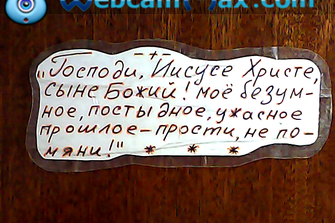 WebcamMax.com
-+-
„Господи, Иисусе Христе,
Сыне Божий! моё безум-
ное, постыдное, ужасное
прошлое–прости, не по-
мяни!" * * *